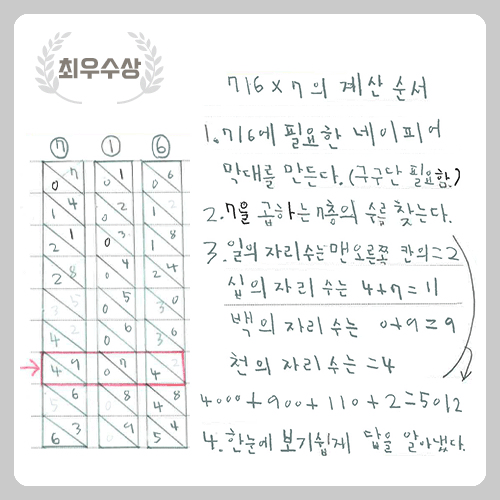 최우수상
716×7의 계산 순서
1. 716에 필요한 네이피어
막대를 만든다. (구구단 필요함.)
2. 7을 곱하는 7층의 수를 찾는다.
3. 일의 자리 수는 맨 오른쪽 칸의 = 2
십의 자리 수는 4+7=11
백의 자리 수는 0+9=9
천의 자리 수는 =4
4000+900+110+2=5012
4. 한눈에 보기쉽게 답을 알아냈다.
7 1 6
0 7 0 1 0 6
1 4 0 2 1 2
2 1 0 3 1 8
2 8 0 4 2 4
3 5 0 5 3 0
4 2 0 6 3 6
4 9 0 7 4 2
5 6 0 8 4 8
6 3 0 9 5 4